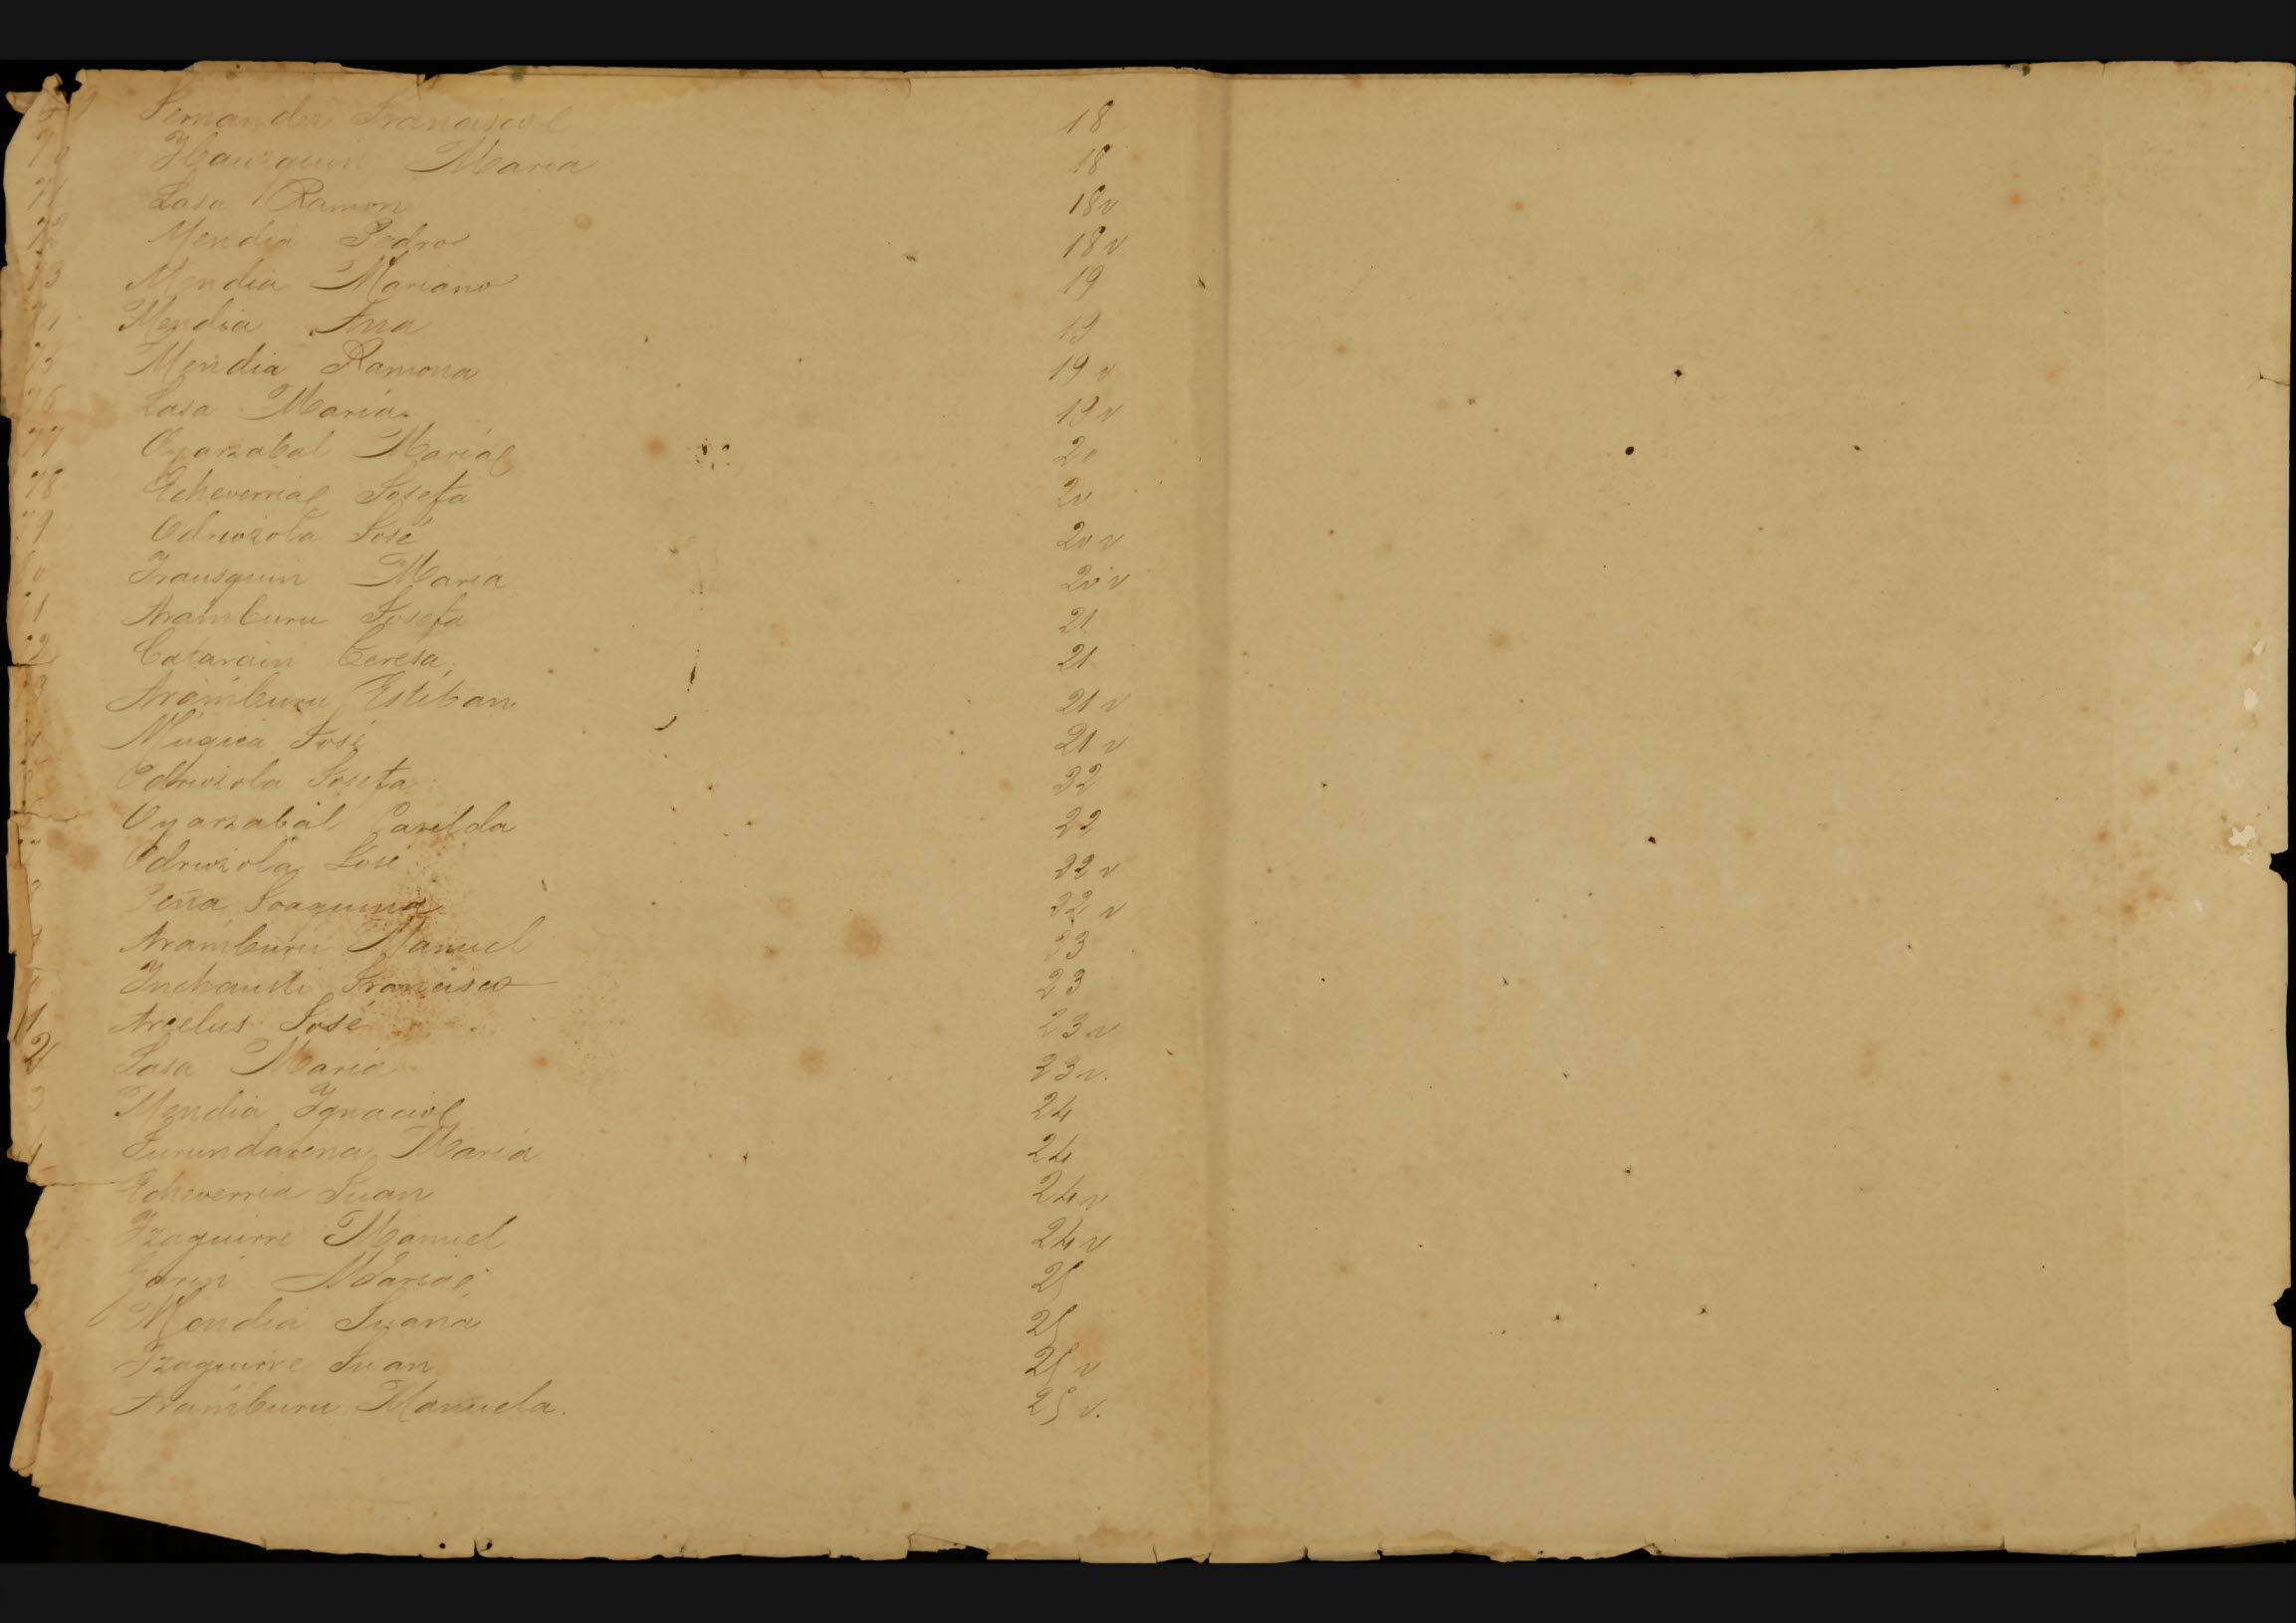 Fernandez Francisco 18
70 Maria 18
71 Lasa Ramon 18v
72 Mendia Pedro 18v
73 Mendia Mariano 19
Mendia Ana 19
75 Mendia Ramona 19v
76 Lasa Maria 19v
77 Oyarzabal Maria 20
78 Echeverria Josefa 20
79 Odriozola José 20v
Irausquin Maria 20v
1 Aramburu Josefa 21
2 Catarain Teresa 21
Aramburu Esteban 21v
Mugica José 21v
Odriozola Josefa 22
Oyarzabal Casilda 22
Odriozola José 22v
Peña Joaquina 22v
Aramburu Manuel 23
Inchausti Francisco 23
1 Arcelus José 23v
2 Lasa Maria 23v.
3 Mendia Ignacio 24
Surundarena Maria 24
Echeverria Juan 24v
Izaguirre Manuel 24v
Garin Maria 25
Mendia Juana 25
Izaguirre Juan 25v
Aramburu Manuela. 25v.